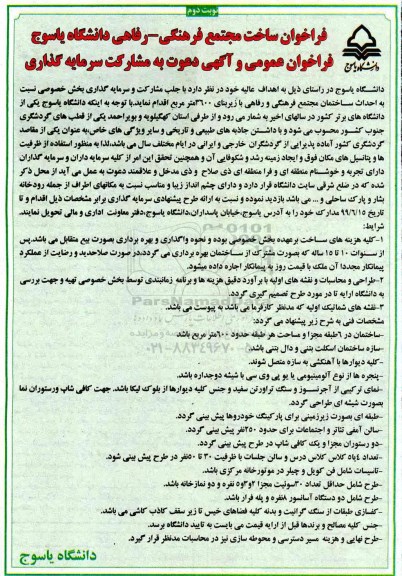 نوبت دوم
فراخوان ساخت مجتمع فرهنگی-رفاهی دانشگاه یاسوج
فراخوان عمومی و آگهی دعوت به مشارکت سرمایه گذاری
دانشگاه یاسوج
دانشگاه یاسوج در راستای ذیل به اهداف عالیه خود در نظر دارد با جلب مشارکت و سرمایه گذاری بخش خصوصی نسبت
به احداث ساختمان مجتمع فرهنگی و رفاهی با زیربنای ۳۶۰۰متر مربع اقدام نماید.با توجه به اینکه دانشگاه یاسوج یکی از
دانشگاه های برتر کشور در سالهای اخیر به شمار می رود و از طرفی استان کهگیلویه و بویراحمد یکی از قطب های گردشگری
جنوب کشور محسوب می شود و با داشتن جاذبه های طبیعی و تاریخی و سایر ویژگی های خاص،به عنوان یکی از مقاصد
گردشگری کشور آماده پذیرایی از گردشگران خارجی و ایرانی در ایام مختلف سال می باشد،لذا به منظور استفاده از ظرفیت
ها و پتانسیل های مکان فوق و ایجاد زمینه رشد و شکوفایی آن و همچنین تحقق این امر از کلیه سرمایه داران و سرمایه گذاران
دارای تجربه و خوشنام منطقه ای و فرا منطقه ای ذی صلاح و ذی مدخل و علاقمند دعوت به عمل می آید از محل ذکر
شده که در ضلع شرقی سایت دانشگاه قرار دارد و دارای چشم انداز زیبا و مناسب نسبت به مکانهای اطراف از جمله رودخانه
بشار و پارک ساحلی و ... می باشد بازدید نموده و نسبت به ارائه طرح پیشنهادی سرمایه گذاری برابر مشخصات ذیل اقدام و تا
تاریخ ۹۹/۶/۱۵ مدارک خود را به آدرس یاسوج،خیابان پاسداران،دانشگاه یاسوج،دفتر معاونت اداری و مالی تحویل نمایند.
شرایط:
۱-کلیه هزینه های ساخت برعهده بخش خصوصی بوده و نحوه واگذاری و بهره برداری بصورت بیع متقابل می باشد.پس
از سنوات ۱۰ تا ۱۵ ساله که بصورت مشترک از ساختمان بهره برداری می گردد،در صورت صلاحدید و رضایت از عملکرد
پیمانکار مجددا آن ملک با قیمت روز به پیمانکار اجاره داده میشود.
۲-طراحی و محاسبات و نقشه های اولیه با برآورد دقیق هزینه ها و برنامه زمانبندی توسط بخش خصوصی تهیه و جهت بررسی
به دانشگاه ارایه تا در مورد طرح تصمیم گیری گردد.
۳-نقشه های شماتیک اولیه که مدنظر کارفرما می باشد به پیوست می باشد.
مشخصات فنی به شرح زیر پیشنهاد می گردد:
-ساختمان در ۶طبقه مجزا و مساحت هر طبقه حدود ۶۰۰متر مربع باشد.
-سازه ساختمان اسکلت بتنی و دال بتنی باشد.
-کلیه دیوارها با آهنکشی به سازه متصل شوند.
-پنجره ها از نوع آلومینیومی یا یو پی وی سی با شیشه دوجداره باشد.
-نمای ترکیبی از آجرنسوز و سنگ تراورتن سفید و جنس کلیه دیوارها از بلوک لیکا باشد. جهت کافی شاپ ورستوران نما
بصورت شیشه ای طراحی گردد.
-طبقه ای بصورت زیرزمینی برای پارکینگ خودروها پیش بینی گردد.
-سالن آمفی تئاتر و اجتماعات برای حدود ۲۵۰نفر پیش بینی گردد.
-دو رستوران مجزا و یک کافی شاپ در طرح پیش بینی گردد.
-تعداد کلاس درس و سالن جلسات با ظرفیت ۳۰ تا ۵۰نفر در طرح پیش بینی شود.
-تاسیسات شامل فن کویل و چیلر در موتورخانه مرکزی باشد.
-طرح شامل حداقل تعداد ۳۰سوئیت مجزا ۲و۳و۵ نفره و دو نمازخانه باشد.
-طرح شامل دو دستگاه آسانسور ۸نفره و پله فرار باشد.
-کفسازی طبقات از سنگ گرانیت و بدنه کلیه فضاهای خیس تا زیر سقف کاذب کاشی می باشد.
-جنس کلیه مصالح و برندها قبل از ارایه قیمت می بایست به تایید دانشگاه برسد.
-طرح نهایی و هزینه مسیر دسترسی و محوطه سازی نیز در محاسبات مدنظر قرار گیرد.
دانشگاه یاسوج